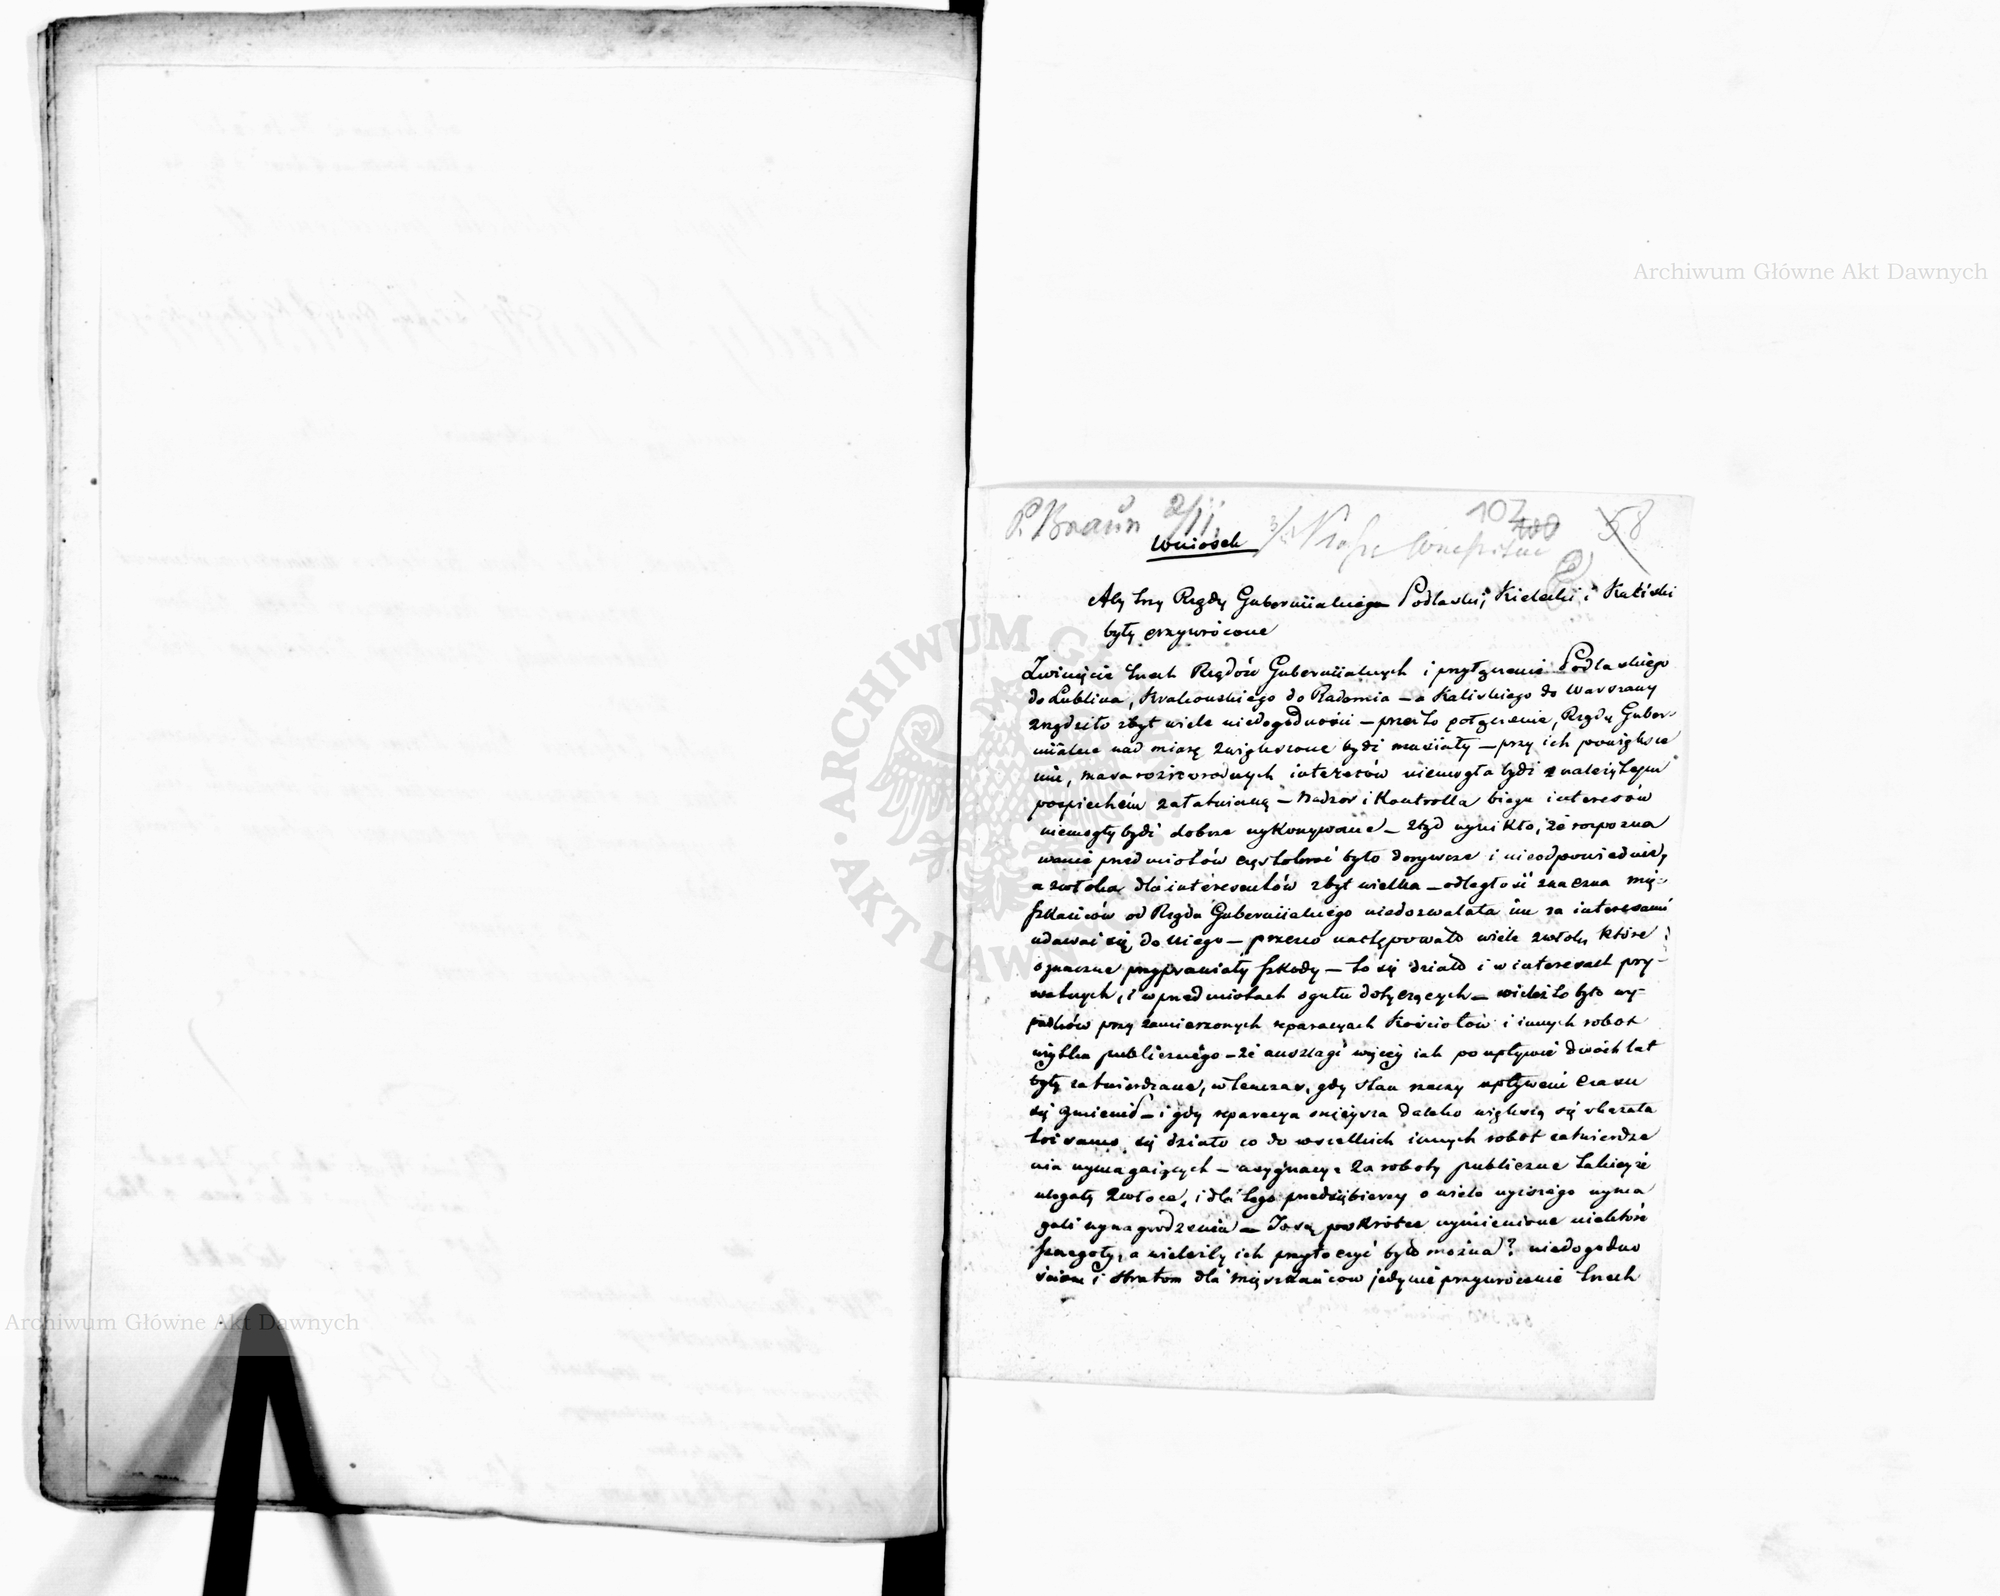 P. Braun 2/11.
107 100 58
Wniosek
Aby trzy Rządy Guberniialnego Podlaski, Kielecki i Kaliski
były przywrócone
Zwinięcie trzech Rządów Guberniialnych i przyłączenie Podlaskiego
do Lublina, Krakowskiego do Radomia – a Kaliskiego do Warszawy
zrządziło zbyt wiele niedogodności – przez to połączenie, Rządy Guber-
nialne nad miarę zwiększone bydź musiały – przy ich powiększe
niu, massa różnorodnych interesów niemogła bydź z należytym
pospiechem załatwianą – Nadzór i Kontrolla biegu interesów
niemogły bydź dobrze wykonywane – ztąd wynikło, że rozpozna
wanie przedmiotów częstokroć było dorywcze i nieodpowiednie,
a zwłoka dla interesentów zbyt wielka – odległość znaczna mię-
szkańców od Rządu Guberniialnego niedozwalała im za interesami
udawać się do niego – przezco następowało wiele zwłok, które
o znaczne przyprawiały szkody – to się działo i w interesach pry-
watnych, i w przedmiotach ogółu dotyczących – wieleż to było wy-
padków przy zamierzonych reparacyach Kościołów i innych robot
użytku publicznego – że anszlagi więcej iak po upływie dwóch lat
były zatwierdzane, wtenczas, gdy stan rzeczy upływem czasu
się zmienił – i gdy reparacya mniejsza daleko większą się okazała
toż samo się działo co do wszelkich innych robot zatwierdze
nia wymagaiących – assygnacye za roboty publiczne takieyże
uległy zwłoce, i dla tego przedsiębiercy o wiele wyższego wyma
gali wynagrodzenia – To są pokrótce wymienione niektóre
szczegóły, a wieleżby ich przytoczyć było można? niedogodno
ściom i stratom dla mięszkańcow jedynie przywrócenie trzech
ARCHIWUM GŁÓWNE AKT DAWNYCH
Archiwum Główne Akt Dawnych
Archiwum Główne Akt Dawnych